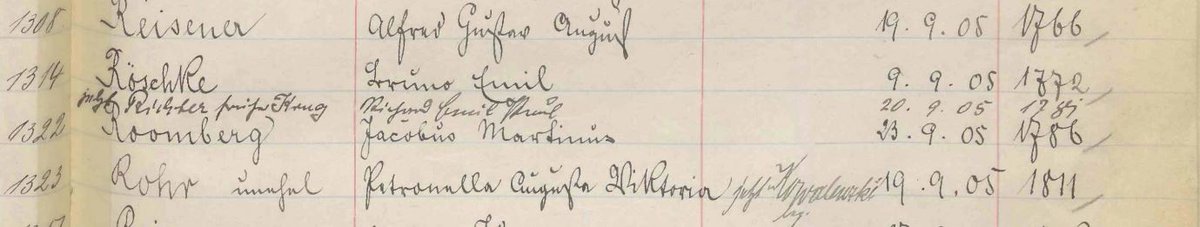 1308 Reisener Alfred Gustav August 19. 9. 05 1766
1314 Röschke Bruno Emil 9. 9. 05 1772
jetzt Richter früher Krug Richard Emil Paul 20. 9. 05
1322 Roomberg Jacobus Martinus 23. 9. 05 1786
1323 Rohr unehel Petronella Augusta Viktoria jetzt 19. 9. 05 1811